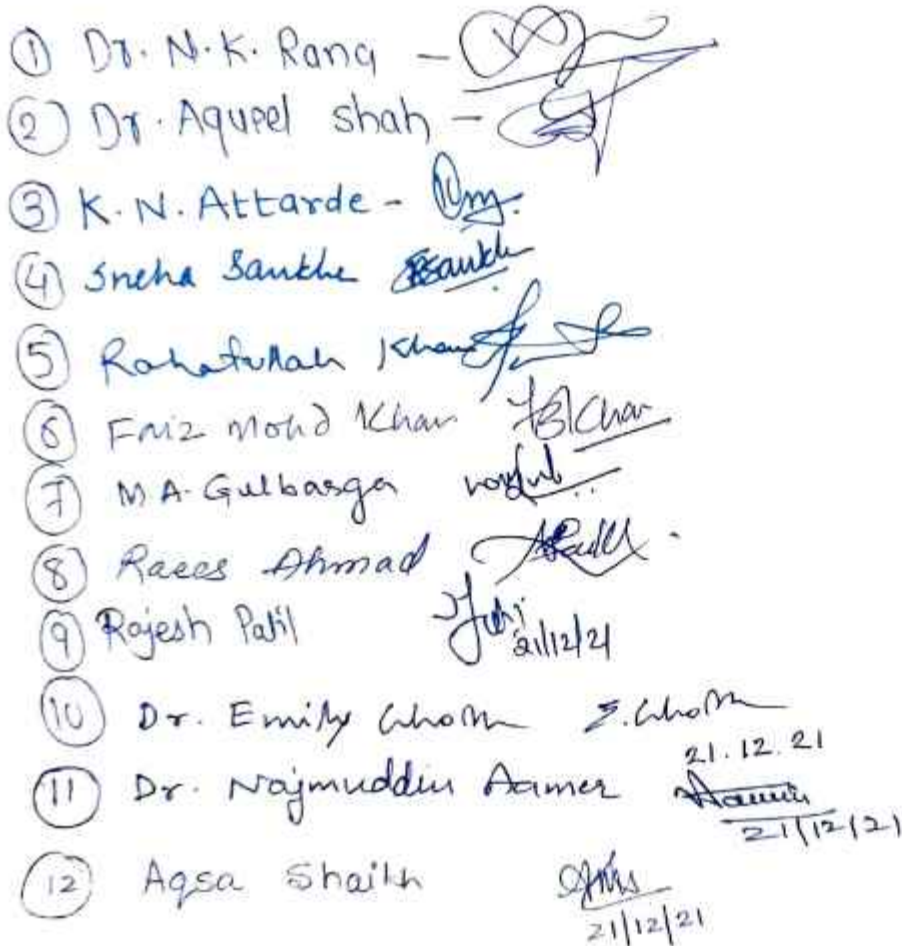 ① Dr. N.K. Rana -
② Dr. Aqueel Shah -
③ K.N. Attarde -
④ Sneha Sankhe Ssankhe
⑤ Rahatullah Khan
⑥ Faiz Mohd Khan Khan
⑦ M A. Gulbarga
⑧ Raees Ahmad
⑨ Rajesh Patil
21/12/21
⑩ Dr. Emily
21.12.21
⑪ Dr. Najmuddin Aamer
21/12/21
⑫ Aqsa Shaikh
21/12/21